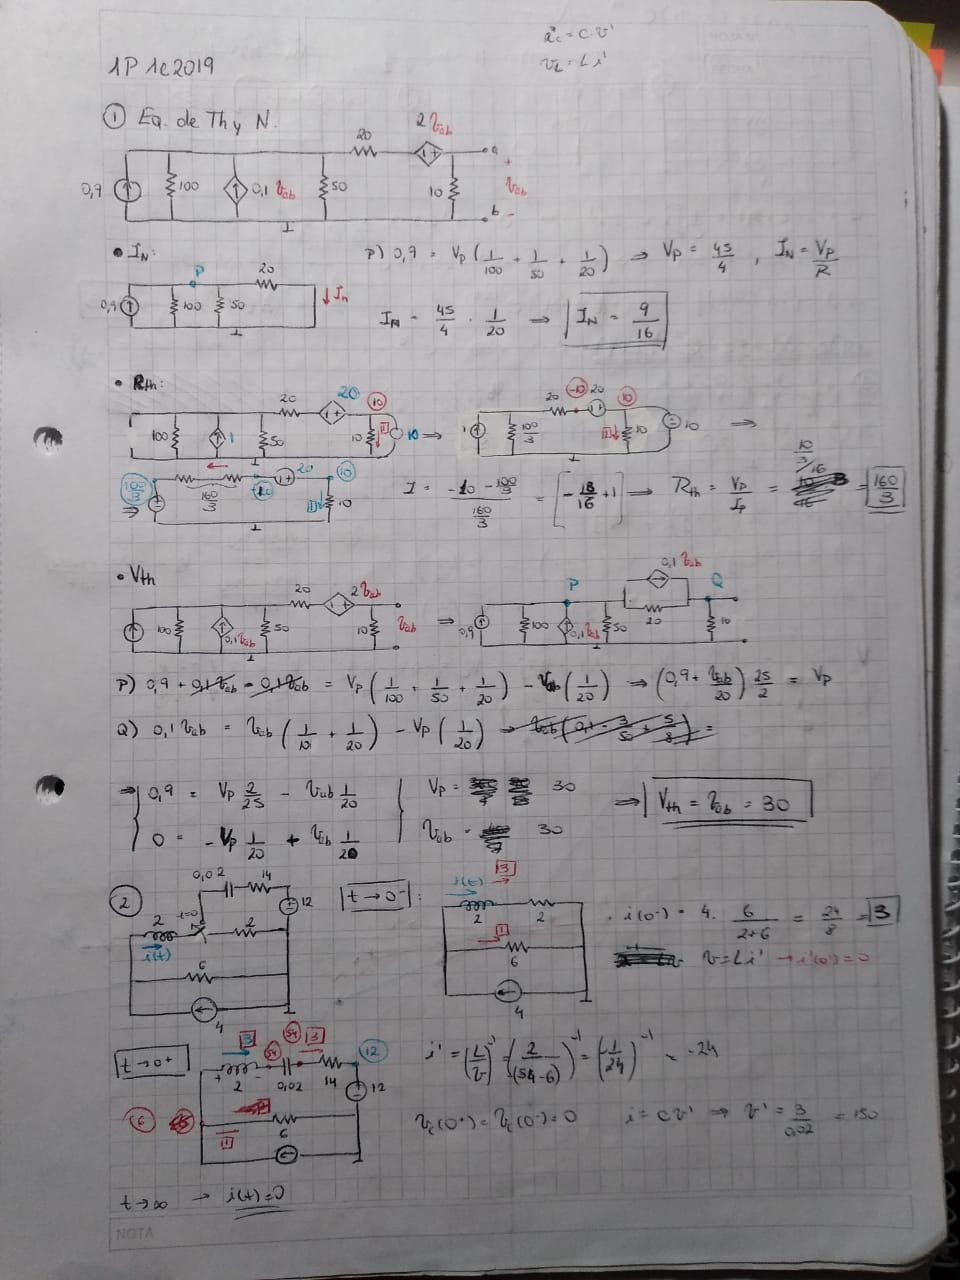 i_c = C v'
v_L = L i'
1P 1c2019
① Eq. de Th y N.
20
2 v_ab
a
0,9
100
0,1 v_ab
50
10
+
v_ab
b -
• I_N:
P) 0,9 = V_P (1/100 + 1/50 + 1/20) ⇒ V_P = 45/4 , I_N = V_P/R
P
20
0,9
100
50
↓ I_N
I_N = 45/4 · 1/20 ⇒ I_N = 9/16
• R_th:
20
20
10
100
1
50
10
1
10
⇒
20
-10
20
10
1
100/3
1
10
10
⇒
100/3
160/3
20
10
10
I = (-10 - 100/3)/(160/3) = [-13/16 + 1] → R_th = V_P/I_P = 10/(3/16) = 160/3
• V_th
20
2 v_ab
100
0,1 v_ab
50
10
v_ab
⇒
0,1 v_ab
P
Q
0,9
100
0,1 v_ab
50
20
10
P) 0,9 + 0,1 v_ab - 0,1 v_ab = V_P (1/100 + 1/50 + 1/20) - v_ab (1/20) ⇒ (0,9 + v_ab/20) 25/2 = V_P
Q) 0,1 v_ab = v_ab (1/10 + 1/20) - V_P (1/20)
⇒ 0,9 = V_P 2/25 - v_ab 1/20
V_P = 30
⇒ V_th = v_ab = 30
0 = -V_P 1/20 + v_ab 1/20
v_ab = 30
②
0,02
14
12
t=0
2
2
i(t)
6
4
t → 0⁻ :
i(t)
3
2
2
1
6
4
· i(0⁻) = 4 · 6/(2+6) = 24/8 = 3
v = L i' → i'(0⁻) = 0
t → 0+
3
54
54
3
12
+
2
-
0,02
14
12
6
1
6
i' = (L/v)⁻¹ = (2/(54-6))⁻¹ = (1/24)⁻¹ = -24
v_c(0⁺) = v_c(0⁻) = 0
i = C v' ⇒ v' = 3/0,02 = 150
t → ∞ → i(t) = 0
NOTA